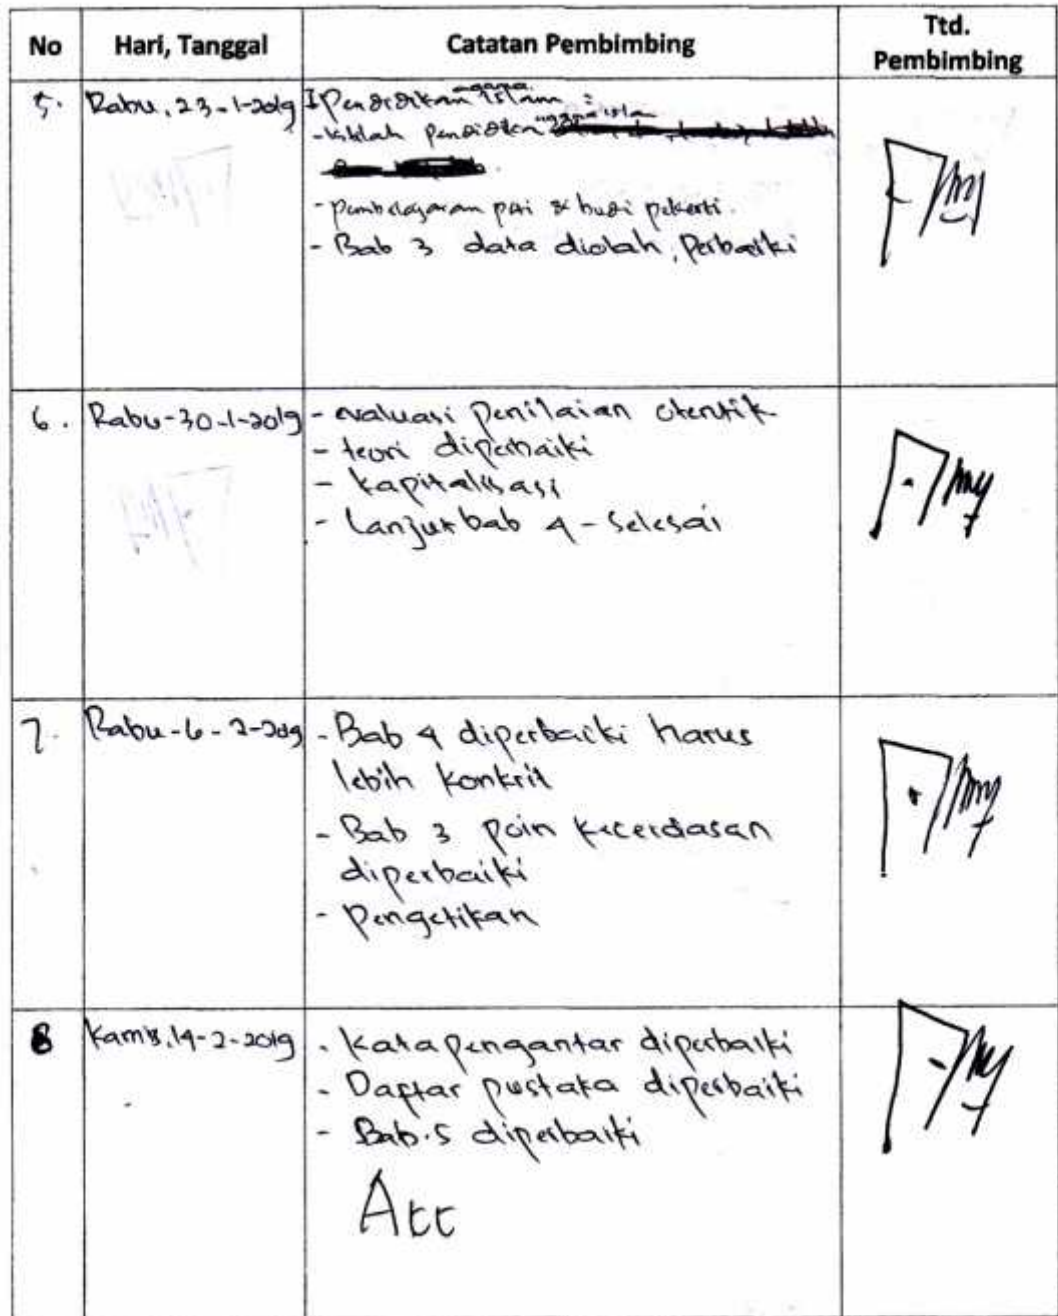 No Hari, Tanggal Catatan Pembimbing Ttd. Pembimbing
5. Rabu, 23-1-2019 Pendidikan agama Islam :
- Istilah pendidikan agama isla
- pembelajaran pai & budi pekerti.
- Bab 3 data diolah, perbaiki
6. Rabu-30-1-2019 - evaluasi penilaian otentik
- teori diperbaiki
- kapitalisasi
- Lanjut bab 4 - selesai
7. Rabu-6-2-2019 - Bab 4 diperbaiki harus
lebih konkrit
- Bab 3 poin kecerdasan
diperbaiki
- Pengetikan
8 Kamis, 14-2-2019 - Kata pengantar diperbaiki
- Daftar pustaka diperbaiki
- Bab.5 diperbaiki
Acc